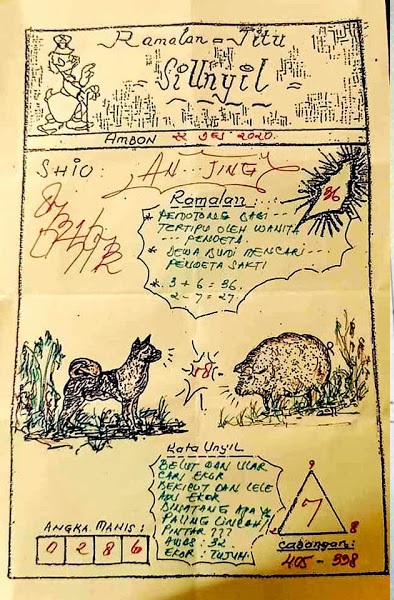 Ramalan = Jitu
Si Unyil
AMBON 2020.
SHIO: AN JING
36
Ramalan:
* PEMOTONG BABI
TERTIPU OLEH WANITA
PENDETA.
* DEWA BUMI MENCARI
PENDETA SAKTI
* 3 + 6 = 36.
2 - 7 = 27.
Kata Unyil
BELUT DAN ULAR
CARI EKOR
BEKICOT DAN LELE
ADU EKOR
BINATANG APA YG
PALING LINCAH /
PINTAR ???
AWAS: 32
EKOR: TUJUH.
ANGKA MANIS:
0 2 8 6
9
7
2 8
Cabangan:
405 - 398